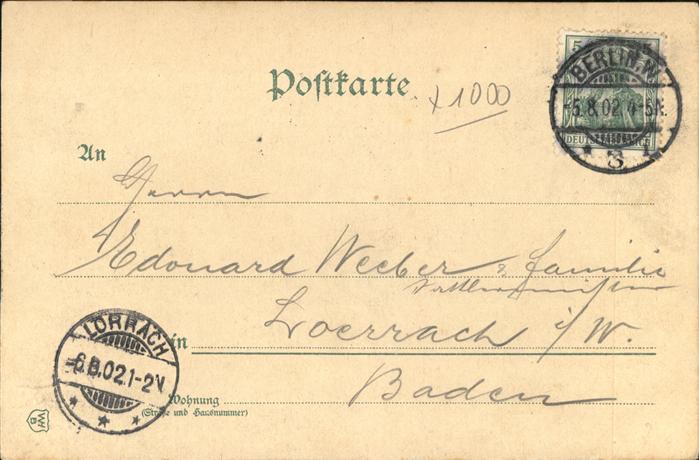 Postkarte
x 1000
5 5
BERLIN, N.
-5.8.02 4-5N.
DEUTSCHES REICH
* 3
An
Herrn
Edouard Weeber & familie
in Loerrach i/W.
Baden
LÖRRACH
6.8.02.1-2V.
* * *
Wohnung
(Straße und Hausnummer)